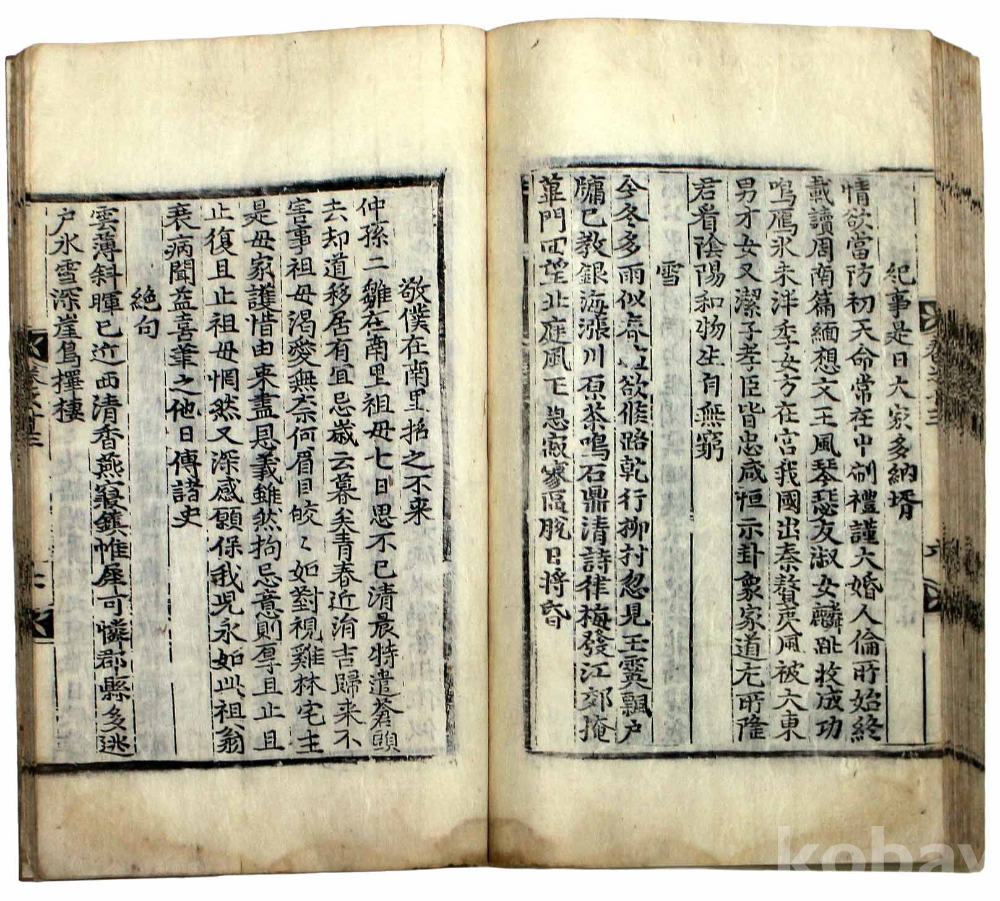 紀事是日大家多納壻
情欲當防初天命常在中制禮謹大婚人倫所始終
載讀周南篇緬想文王風琴瑟友淑女麟趾投成功
鳴鴈氷未泮季女方在宮我國出秦贅夷風被大東
男才女又潔子孝臣皆忠咸恒示卦象家道尤所隆
君看陰陽和物生自無窮
雪
全冬多雨似春欲脩路乾行柳村忽見玉霙飄戶
牖已教銀海漲川原茶鳴石鼎淸詩律梅發江郊掩
蓽門回望北庭風正悲寂寥區脫日將昏
敬僕在南里招之不来
仲孫二雛在南里祖母七日思不已清晨特遣蒼頭
去却道移居有冝忌歲云暮矣青春近涓吉歸来不
害事祖母渴愛無柰何眉目皎〻如對視雞林宅主
是母家護惜由来盡恩義雖然拘忌意則厚且止且
止復且止祖母惘然又深感願保我児永如此祖翁
衰病聞益喜筆之他日傳諸史
絶句
雲薄斜暉已近西清香燕寢鎮帷犀可憐郡縣多逃
户氷雪深崖鳥擇棲
kobay